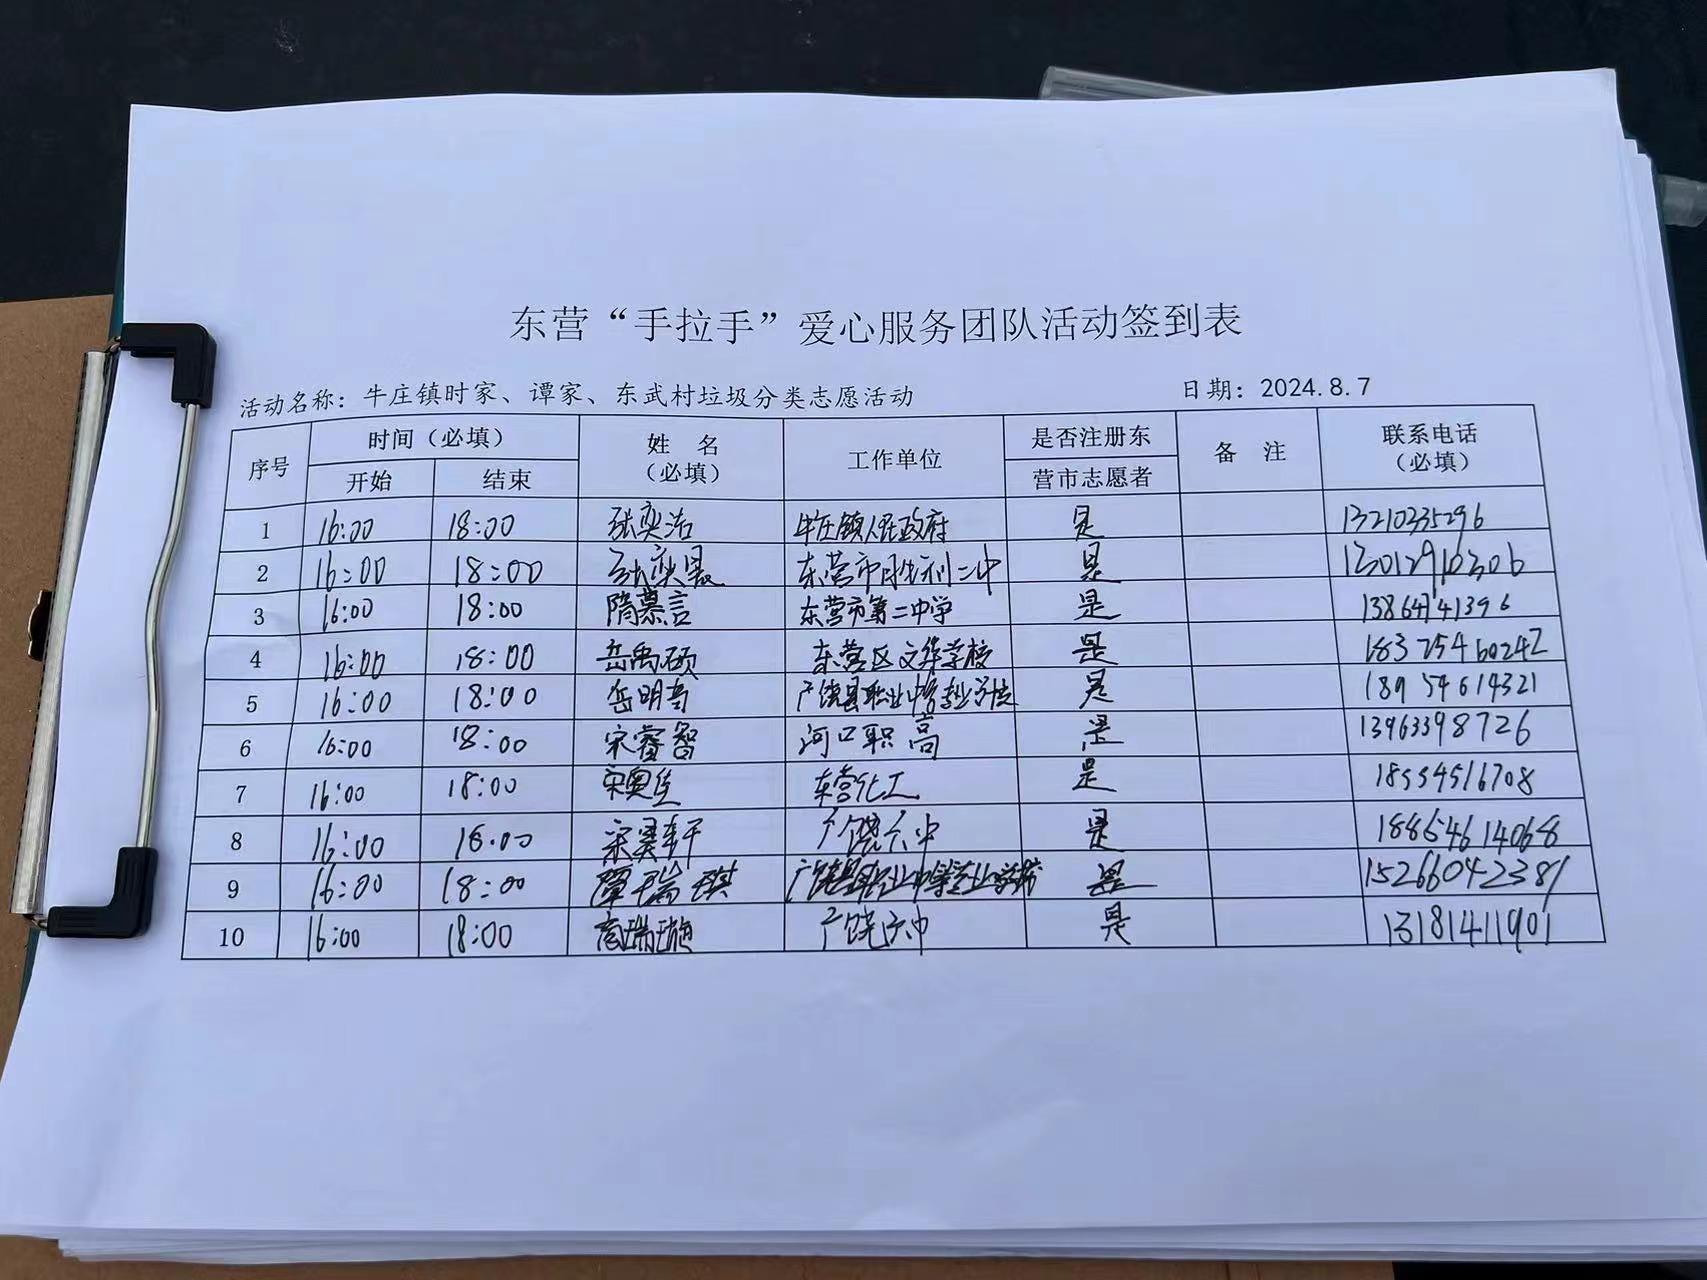 东营“手拉手”爱心服务团队活动签到表
活动名称：牛庄镇时家、谭家、东武村垃圾分类志愿活动 日期：2024.8.7
序号 时间（必填） 姓 名（必填） 工作单位 是否注册东营市志愿者 备 注 联系电话（必填）
开始 结束
1 16:00 18:00 张奕浩 牛庄镇人民政府 是 13210335296
2 16:00 18:00 张奕晨 东营市胜利二中 是 13012910306
3 16:00 18:00 隋慕言 东营市第二中学 是 13864741396
4 16:00 18:00 岳禹硕 东营区文华学校 是 18325460242
5 16:00 18:00 岳明奇 广饶县职业中等专业学校 是 18954614321
6 16:00 18:00 宋睿智 河口职高 是 13963398726
7 16:00 18:00 宋奥佳 东营化工 是 18554516708
8 16:00 18:00 宋昊轩 广饶六中 是 18854614068
9 16:00 18:00 覃瑞琪 广饶县职业中等专业学校 是 15266042381
10 16:00 18:00 高瑞璇 广饶六中 是 13181411901